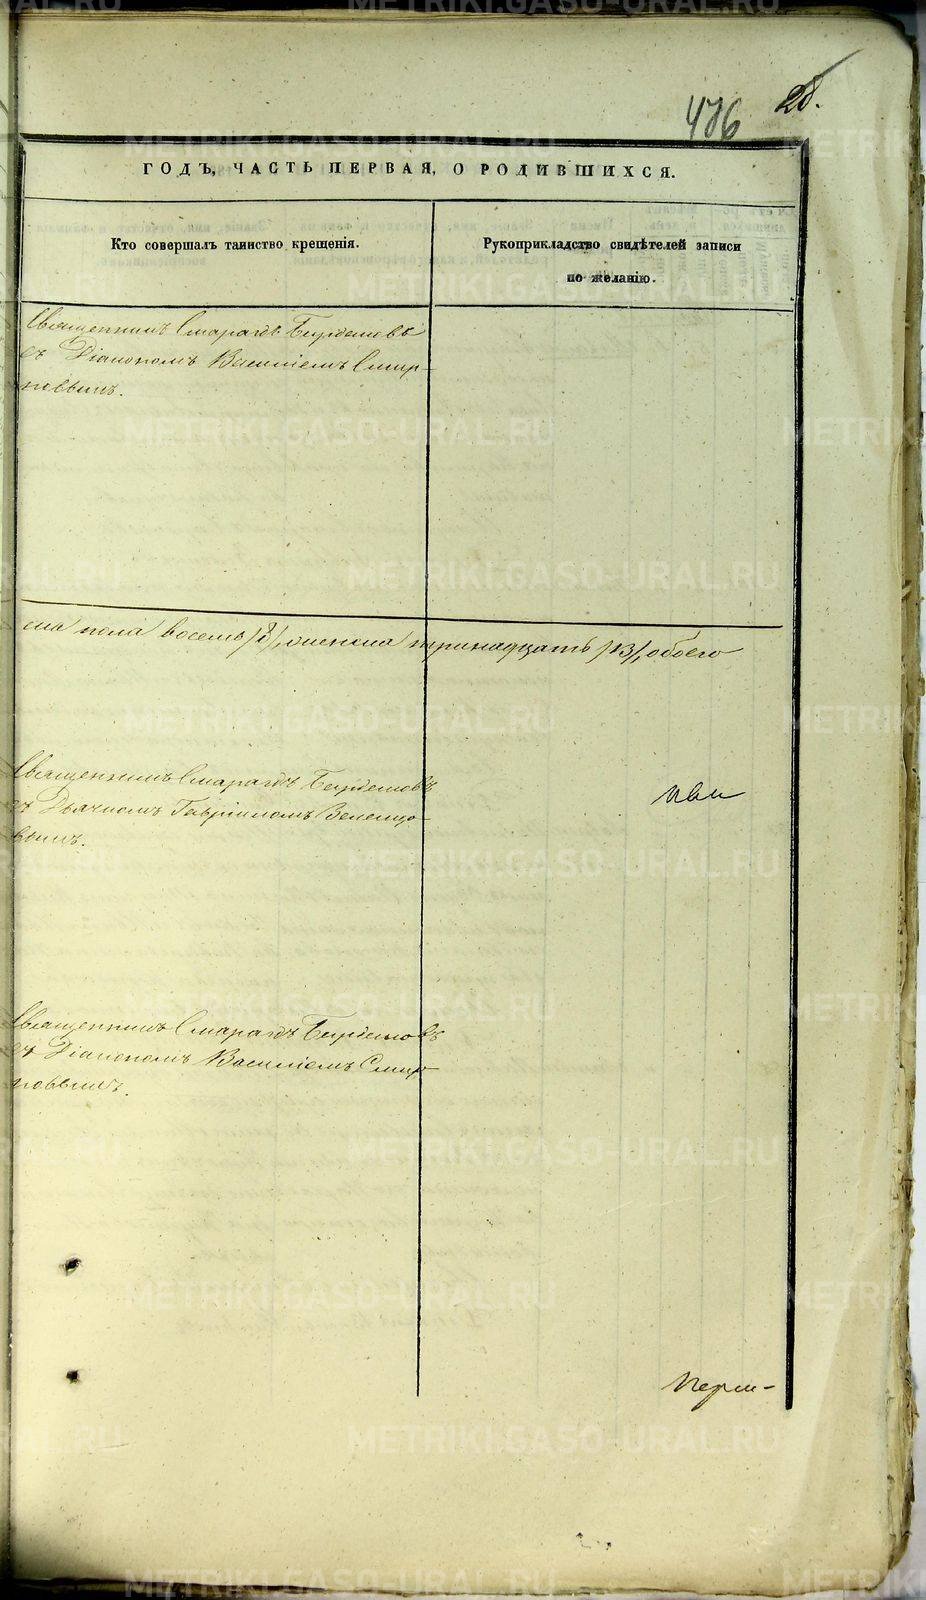 476 28.
ГОДЪ, ЧАСТЬ ПЕРВАЯ, О РОДИВШИХСЯ.
Кто совершалъ таинство крещенія.
Рукоприкладство свидѣтелей записи
по желанію.
Священникъ Смарагдъ
съ Діакономъ Василіемъ Смир-
новымъ.
пола восемь /8/, женска тринадцать /13/, обоего
Священникъ Смарагдъ
съ Дьячкомъ Гавріиломъ
вымъ.
Священникъ Смарагдъ
съ Діакономъ Василіемъ Смир-
новымъ.
METRIKI.GASO-URAL.RU